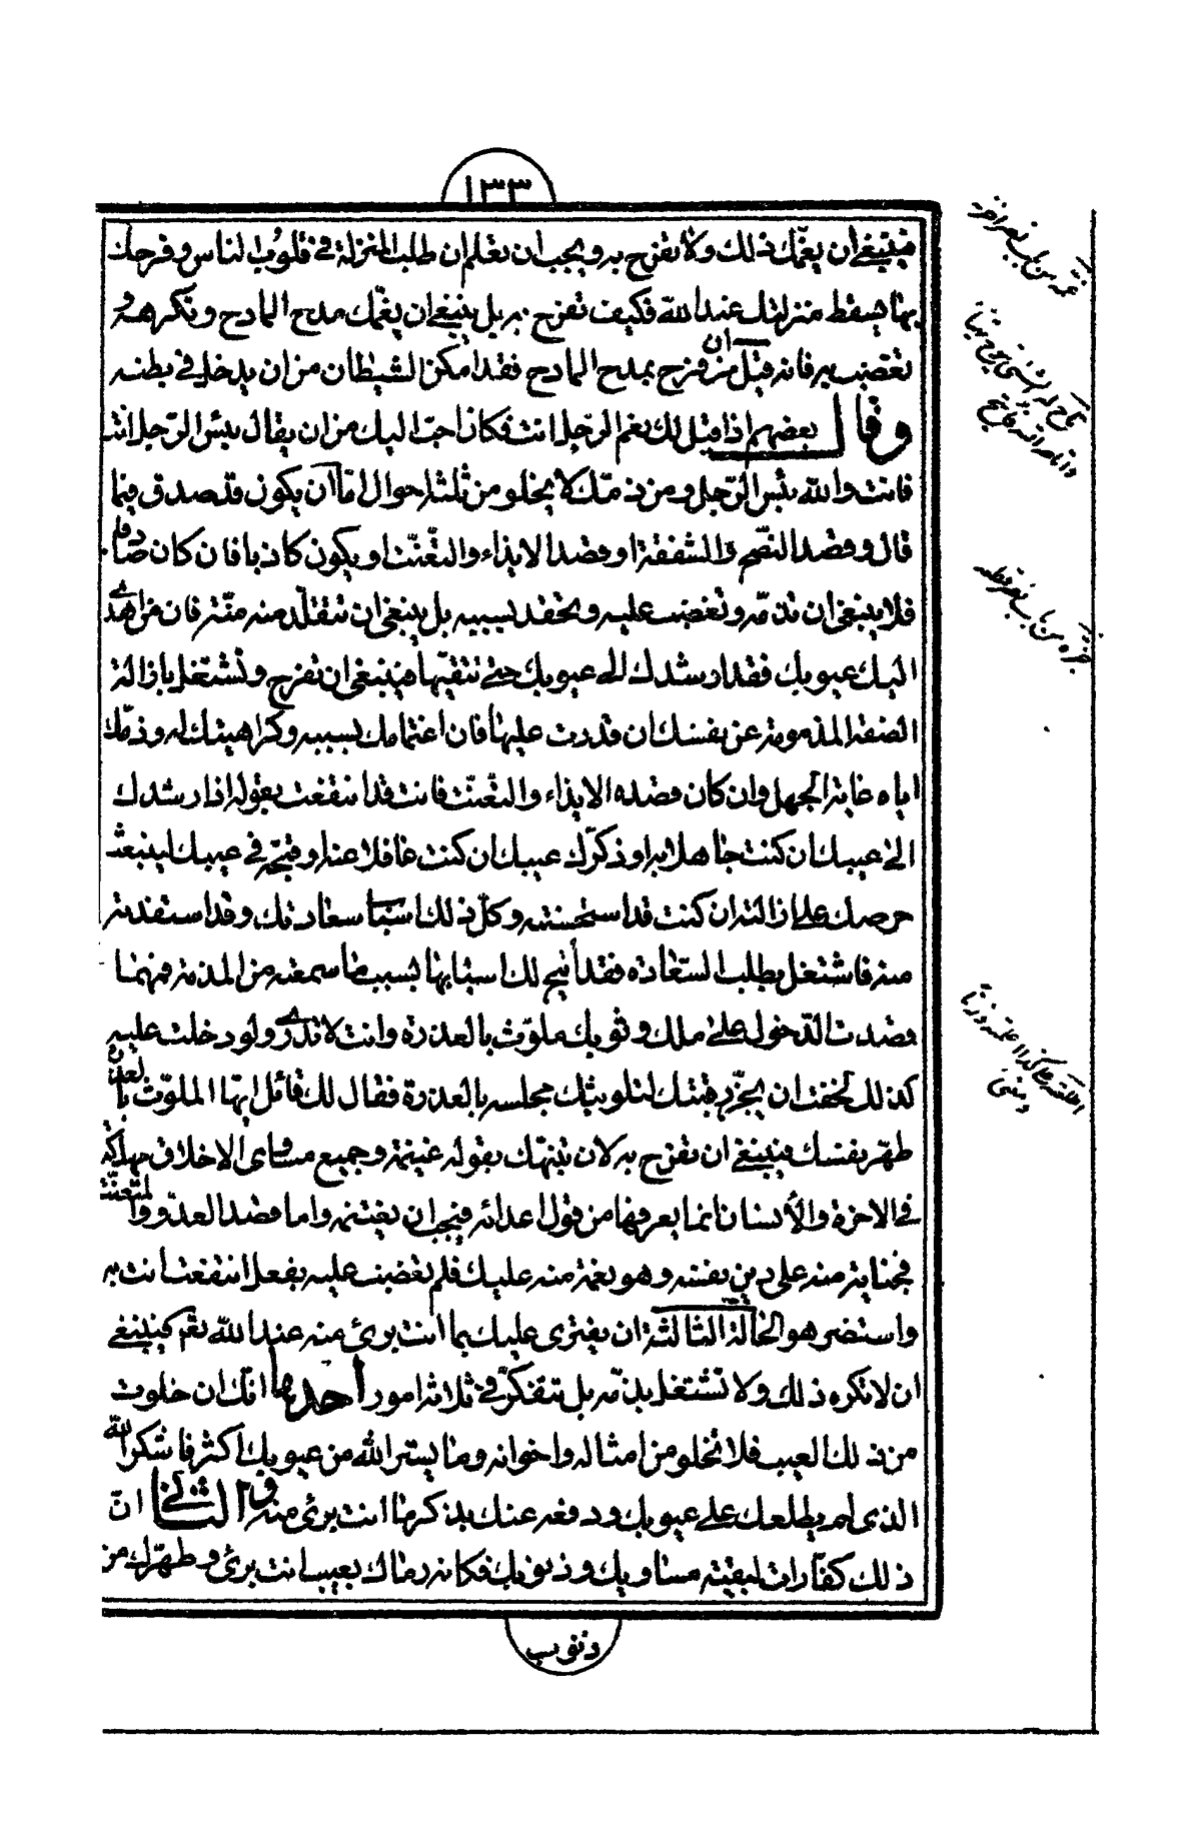 ١٣٣
فينبغي ان يغمّك ذلك ولا تفرح به ويجب ان تعلم ان طلب المنزلة في قلوب الناس وفرحك
بها يسقط منزلتك عند الله فكيف تفرح به بل ينبغي ان يغمّك مدح المادح وتكرهه و
تغضب به فانه قيل ان من فرح بمدح المادح فقد امكن الشيطان من ان يدخل في بطنه
وقال بعضهم اذا قيل لك نعم الرجل انت فكان احبّ اليك من ان يقال بئس الرجل انت
فانت والله بئس الرّجل ومن ذمّك لا يخلو من ثلثة احوال امّا ان يكون قد صدق فيما
قال وقصد النصح والشفقة او قصد الايذاء والتعنّت او يكون كاذبا فان كان صادقا
فلا ينبغي ان تذمّه وتغضب عليه وتحقد بسببه بل ينبغي ان تتقلّد منه منّته فان من اهدى
اليك عيوبك فقد ارشدك الى عيوبك حتى تتقيها فينبغي ان تفرح وتشتغل بازالة
الصفة المذمومة عن نفسك ان قدرت عليها فان اغتمامك بسببه وكراهيتك له وذمّك
اياه غاية الجهل وان كان قصده الايذاء والتعنّت فانت قد انتفعت بقوله اذ ارشدك
الى عيبك ان كنت جاهلا به او ذكّرك عيبك ان كنت غافلا عنه او قبّحه في عينك لينبعث
حرصك على ازالته ان كنت قد استحسنته وكلّ ذلك اسباب سعادتك وقد استفدته
منه فاشتغل بطلب السّعادة فقد اتيح لك اسبابها بسبب ما سمعته من المذمة فمهما
قصدت الدّخول على ملك وثوبك ملوّث بالعذرة وانت لا تدري ولو دخلت عليه
كذلك لخفت ان يجزّ رقبتك لتلويثك مجلسه بالعذرة فقال لك قائل ايّها الملوّث بالعذرة
طهّر نفسك فينبغي ان تفرح به لان تنبّهك بقوله غنيمة وجميع مساوي الاخلاق مهلكة
في الاخرة والانسان انما يعرفها من قول اعدائه فيجب ان يغتنمه واما قصد العدوّ والمتعنّت
فجناية منه على دين نفسه وهو نعمة منه عليك فلم تغضب عليه بفعل انتفعت انت به
واستضرّ هو الحالة الثالثة ان يفتري عليك بما انت بريء منه عند الله تعم فينبغي
ان لا تكره ذلك ولا تشتغل بذمّه بل تتفكّر في ثلاثة امور احدها انّك ان خلوت
من ذلك العيب فلا تخلو من امثاله واخوانه وما يستر الله من عيوبك اكثر فاشكر الله
الذي لم يطلعك على عيوبك ودفعه عنك بذكر ما انت بريء منه والثاني انّ
ذلك كفّارات لبقية مساويك وذنوبك فكانه رماك بعيب انت بريء وطهّرك من
ذنوب